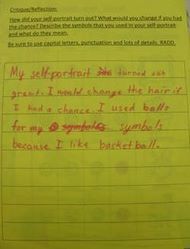 Critique/Reflection:
How did your self portrait turn out? What would you change if you had
the chance? Describe the symbols that you used in your self-portrait
and what do they mean.
Be sure to use capital letters, punctuation and lots of details. RADD.
My self-portrait turned out
great. I would change the hair if
I had a chance. I used balls
for my symbols symbols
because I like basketball.